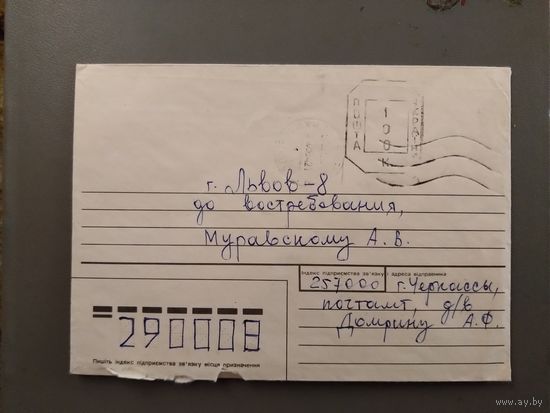 ПОШТА
100К
г. Львов-8
до востребования,
Муравскому А. В.
Індекс підприємства зв'язку і адреса відправника
257000 г. Черкассы,
почтамт, д/в
Домрину А.Ф.
290008
Пишіть індекс підприємства зв'язку місця призначення
www.ay.by